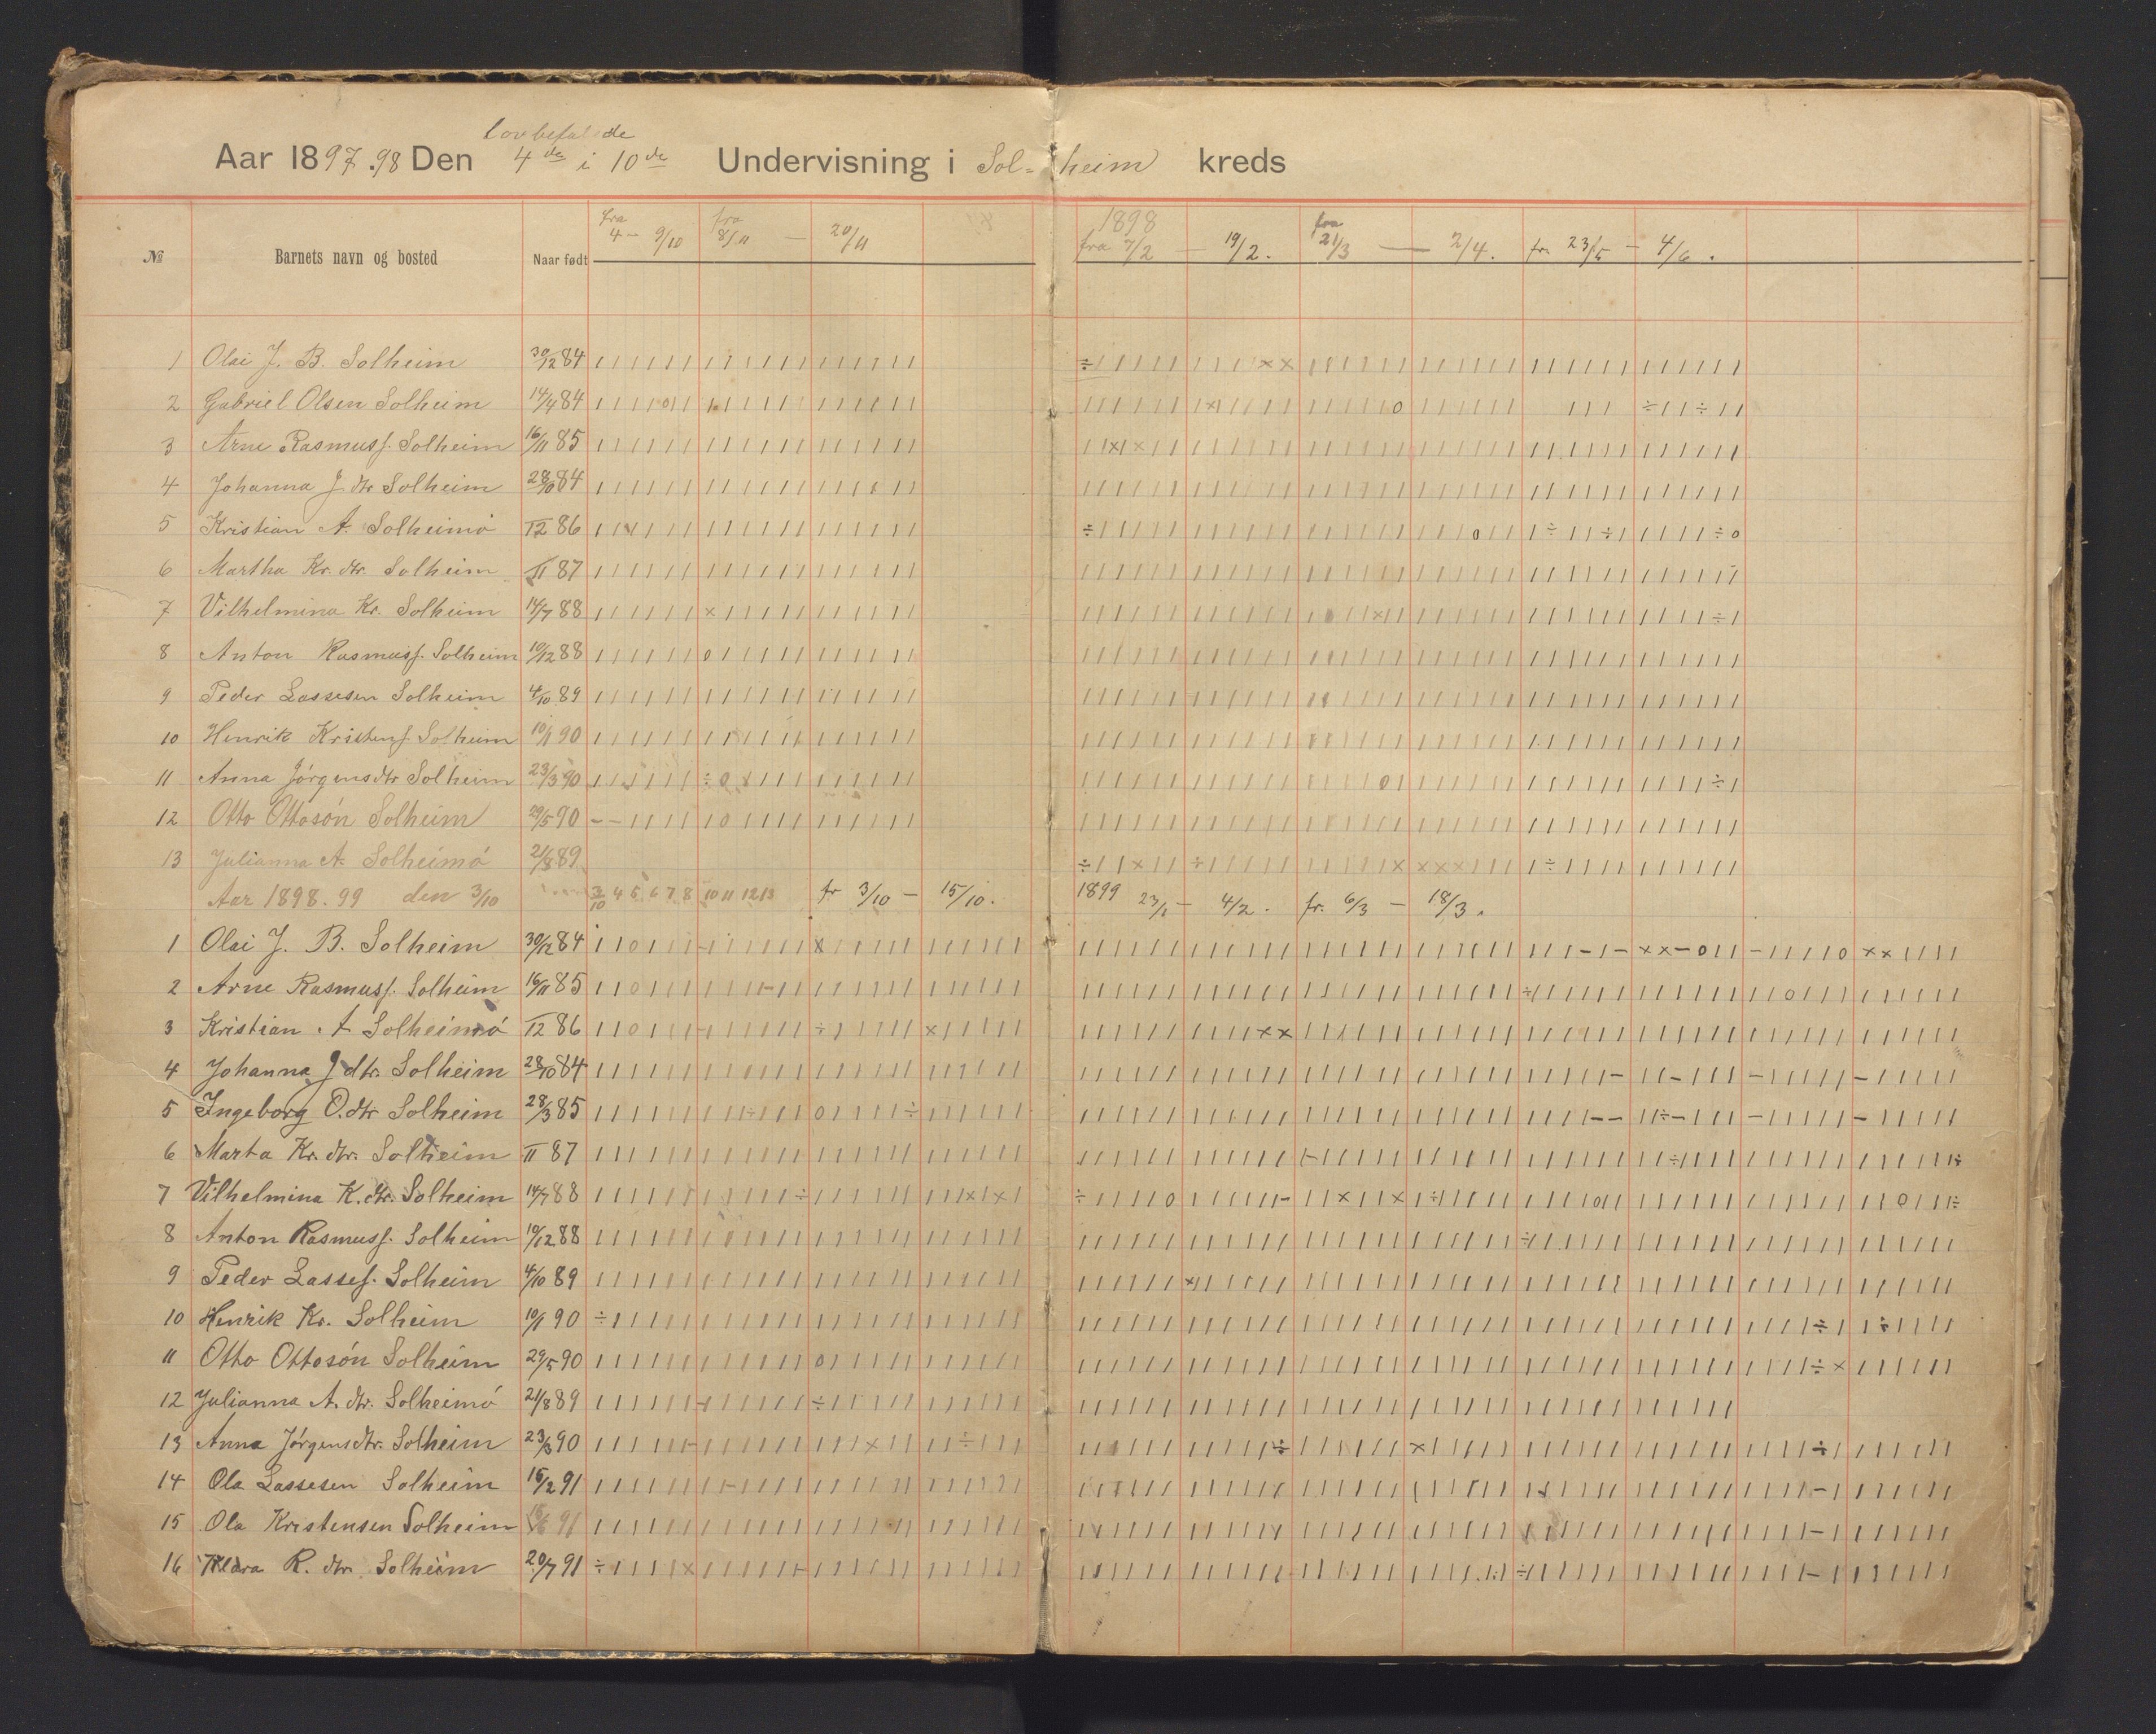 lovbefalede
Aar 1897.98 Den 4de i 10de Undervisning i Sol-heim kreds
№ Barnets navn og bosted Naar født fra 4 – 9/10 fra 8/11 – 20/11 1898 fra 7/2 – 19/2. fra 21/3 — 2/4. fr. 23/5 – 4/6.
1 Olai J. B. Solheim 30/12 84
2 Gabriel Olsen Solheim 14/4 84
3 Arne Rasmuss. Solheim 16/11 85
4 Johanna J. dtr Solheim 28/10 84
5 Kristian A. Solheimó 12 86
6 Martha Kr. dtr. Solheim 11 87
7 Vilhelmina Kr. Solheim 14/7 88
8 Anton Rasmuss. Solheim 10/12 88
9 Peder Lassesen Solheim 4/10 89
10 Henrik Kristens. Solheim 10/1 90
11 Anna Jörgensdtr Solheim 23/3 90
12 Otto Ottosón Solheim 29/5 90
13 Julianna A. Solheimó 21/8 89
Aar 1898.99 den 3/10 3/10 4 5 6 7 8 10 11 12 13 fr 3/10 – 15/10. 1899 23/1 – 4/2. fr. 6/3 – 18/3.
1 Olai J. B. Solheim 30/12 84
2 Arne Rasmuss. Solheim 16/11 85
3 Kristian A Solheimó 12 86
4 Johanna J dtr. Solheim 28/10 84
5 Ingeborg O. dtr Solheim 28/3 85
6 Marta Kr. dtr. Solheim 11 87
7 Vilhelmina K. dtr. Solheim 14/7 88
8 Anton Rasmuss. Solheim 10/12 88
9 Peder Lasses. Solheim 4/10 89
10 Henrik Kr. Solheim 10/1 90
11 Otto Ottosón Solheim 29/5 90
12 Julianna A. dtr. Solheimó 21/8 89
13 Anna Jörgensdtr. Solheim 23/3 90
14 Ola Lassesen Solheim 15/2 91
15 Ola Kristensen Solheim 91
16 Klara R. dtr. Solheim 20/7 91